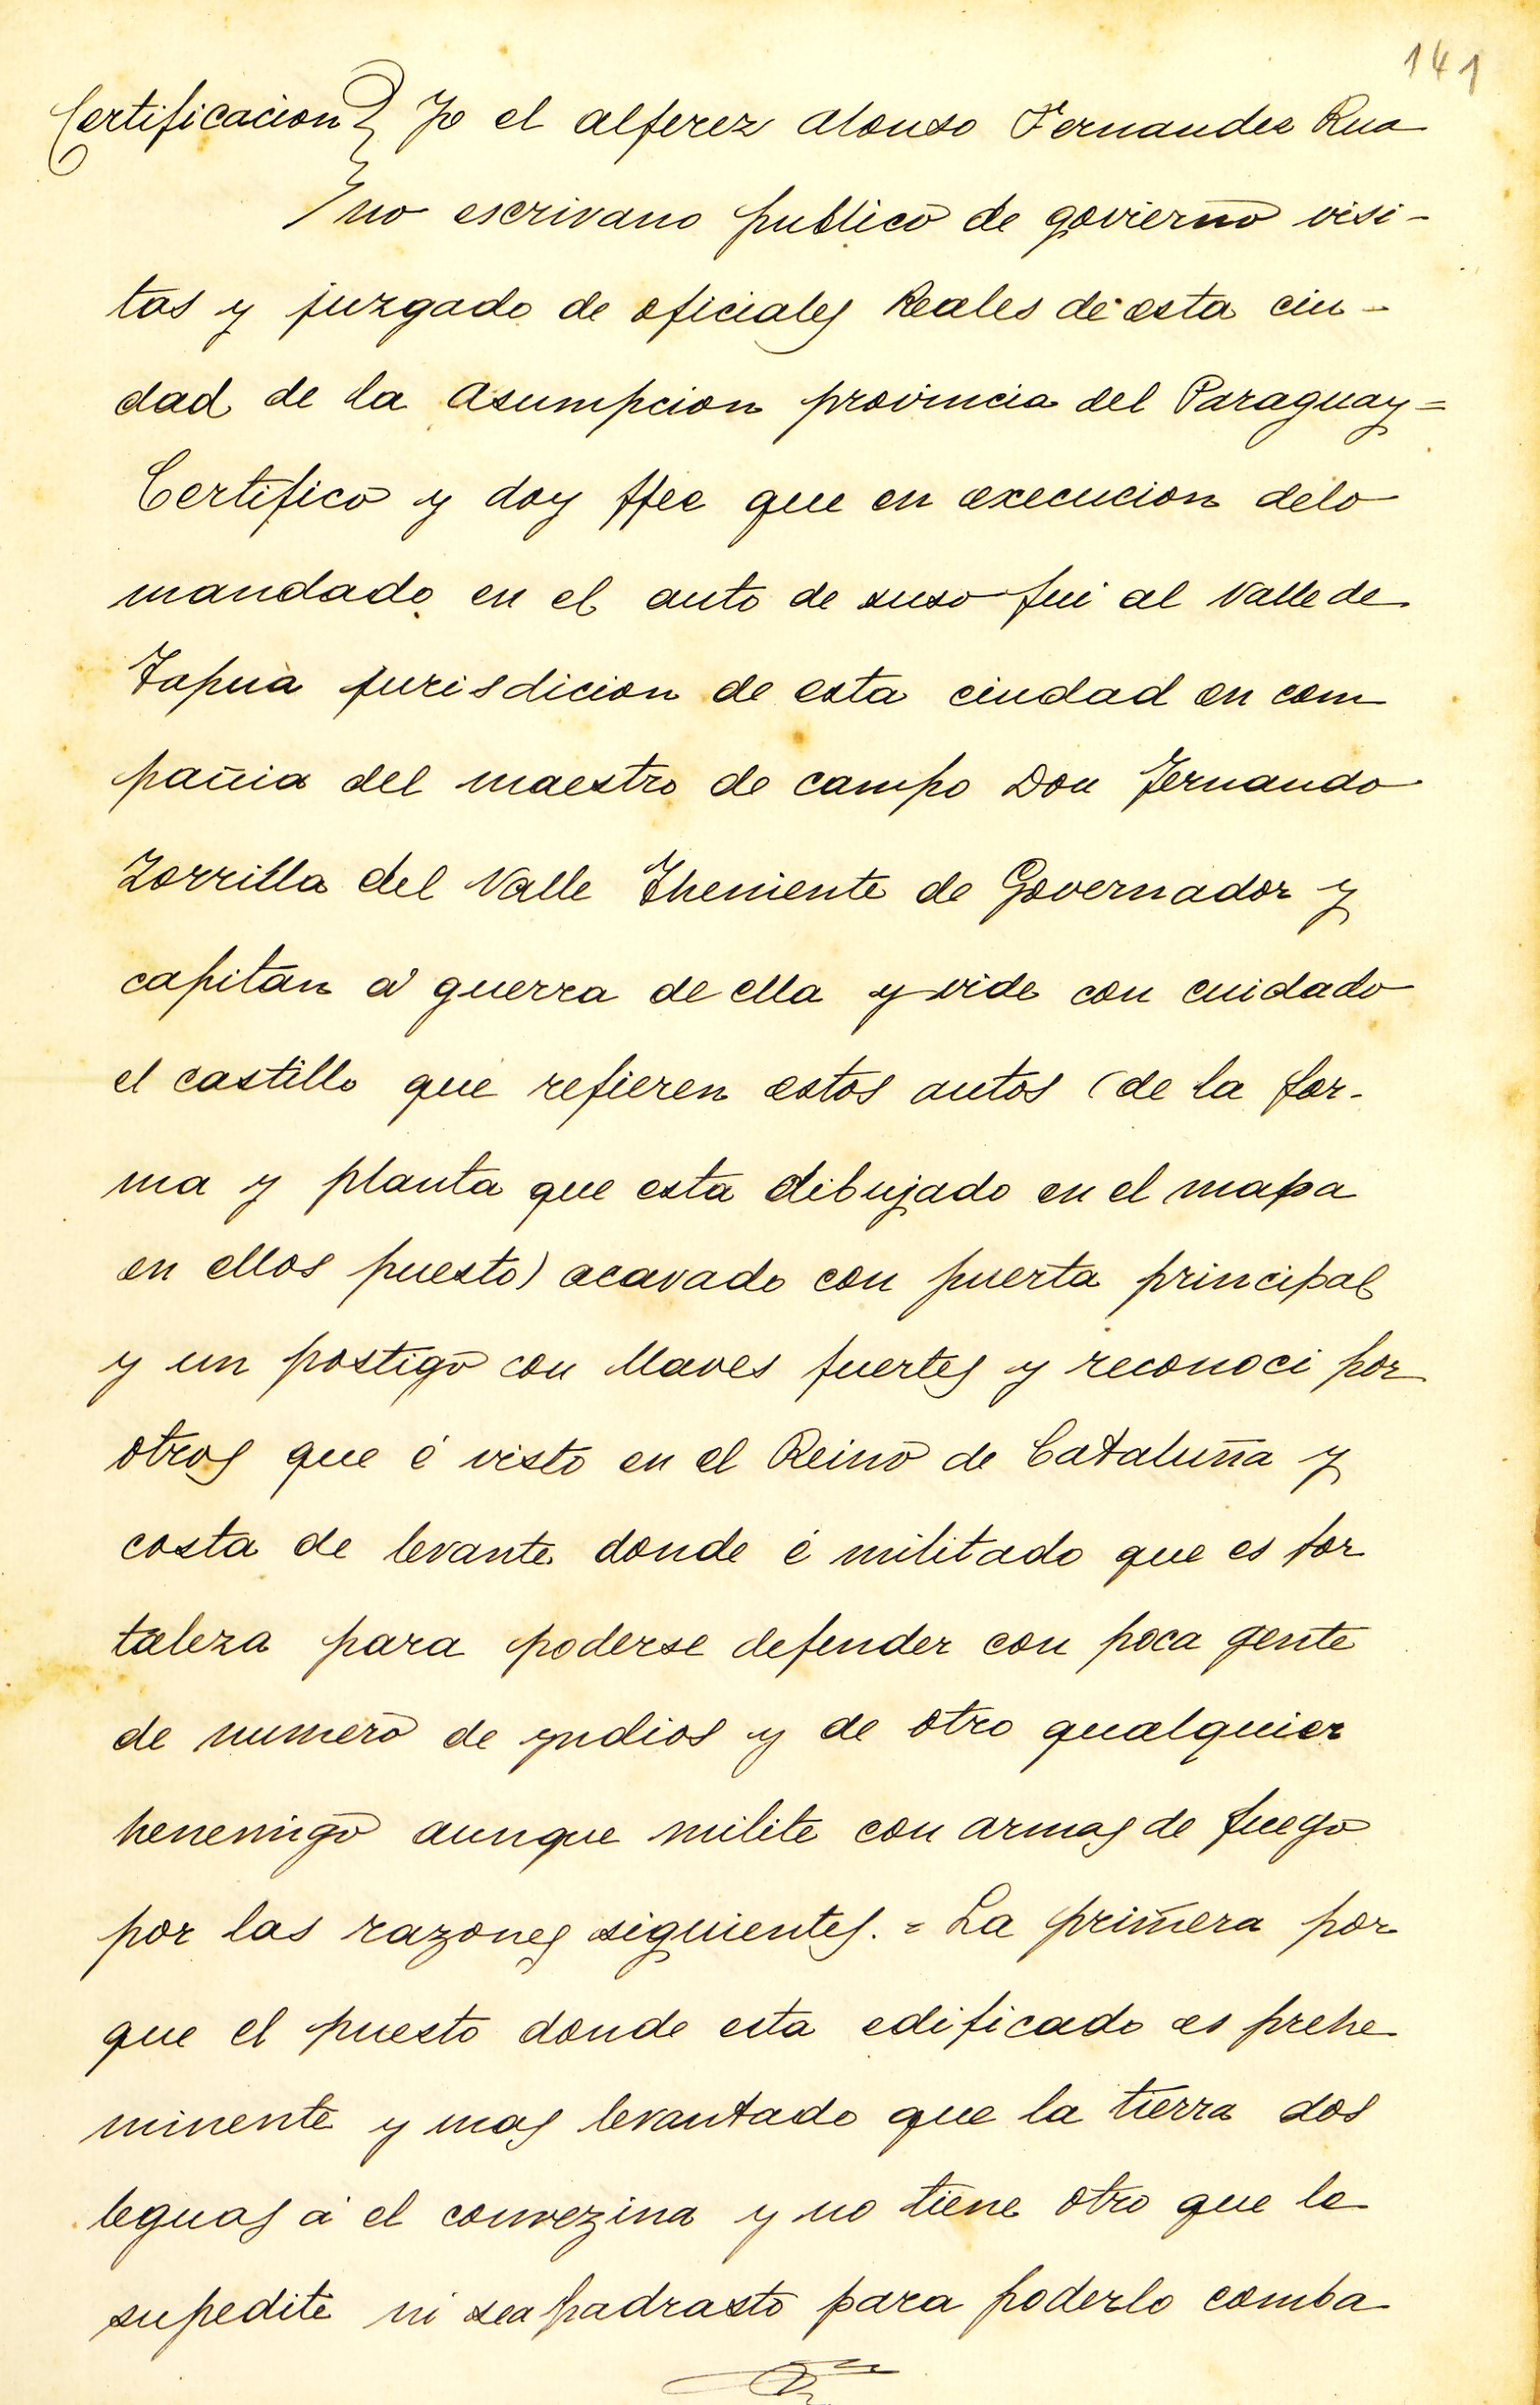 141
Certificacion} Yo el alferez Alonso Fernandez Rua
no escrivano publico de govierno visi-
tas y juzgado de oficiales Reales de esta ciu-
dad de la Asumpcion provincia del Paraguay=
Certifico y doy ffee que en execucion delo
mandado en el auto de suso fui al Valle de
Tapua jurisdicion de esta ciudad en com
pañia del maestro de campo Don Fernando
Zorrilla del Valle Theniente de Governador y
capitan á guerra de ella y vide con cuidado
el castillo que refieren estos autos (de la for-
ma y planta que esta dibujado en el mapa
en ellos puesto) acavado con puerta principal
y un postigo con llaves fuertes y reconoci por
otros que é visto en el Reino de Cataluña y
costa de levante donde é militado que es for
taleza para poderse defender con poca gente
de numero de yndios y de otro qualquier
henemigo aunque milite con armas de fuego
por las razones siguientes. = La primera por
que el puesto donde esta edificado es prehe
minente y mas levantado que la tierra dos
leguas á el convezina y no tiene otro que le
supedite ni sea padrasto para poderlo comba